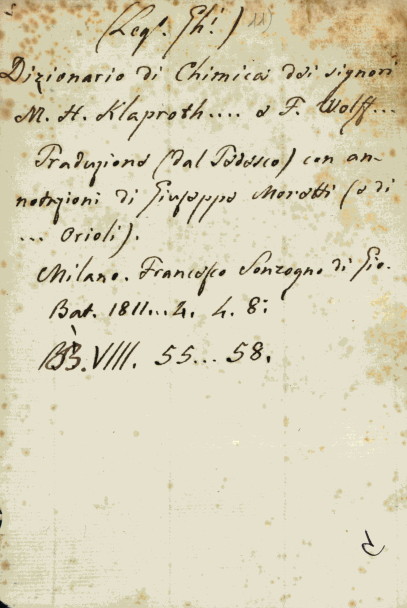 (Leg. Ghi.) 11)
Dizionario di Chimica dei signori
M. H. Klaproth.... e F. Wolff...
Traduzione (dal Tedesco) con an-
notazioni di Giuseppe Moretti (e di
... Orioli).
Milano. Francesco Sonzogno di Gio.
Bat. 1811...4. 4. 8:
BB. VIII. 55... 58.